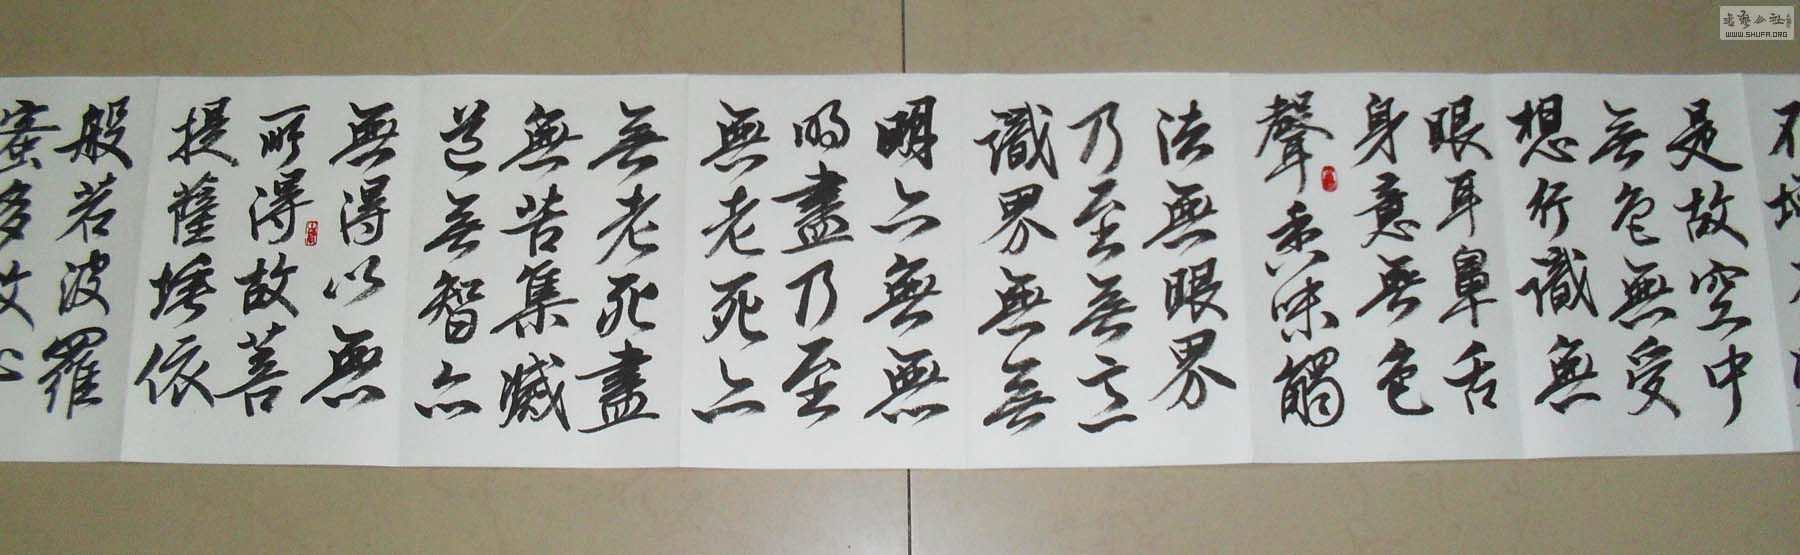 不增不
是故空中
無色無受
想行識無
眼耳鼻舌
身意無色
聲香味觸
法無眼界
乃至無意
識界無無
明亦無無
明盡乃至
無老死亦
無老死盡
無苦集滅
道無智亦
無得以無
所得故菩
提薩埵依
般若波羅
蜜多故心
書藝公社
WWW.SHUFA.ORG